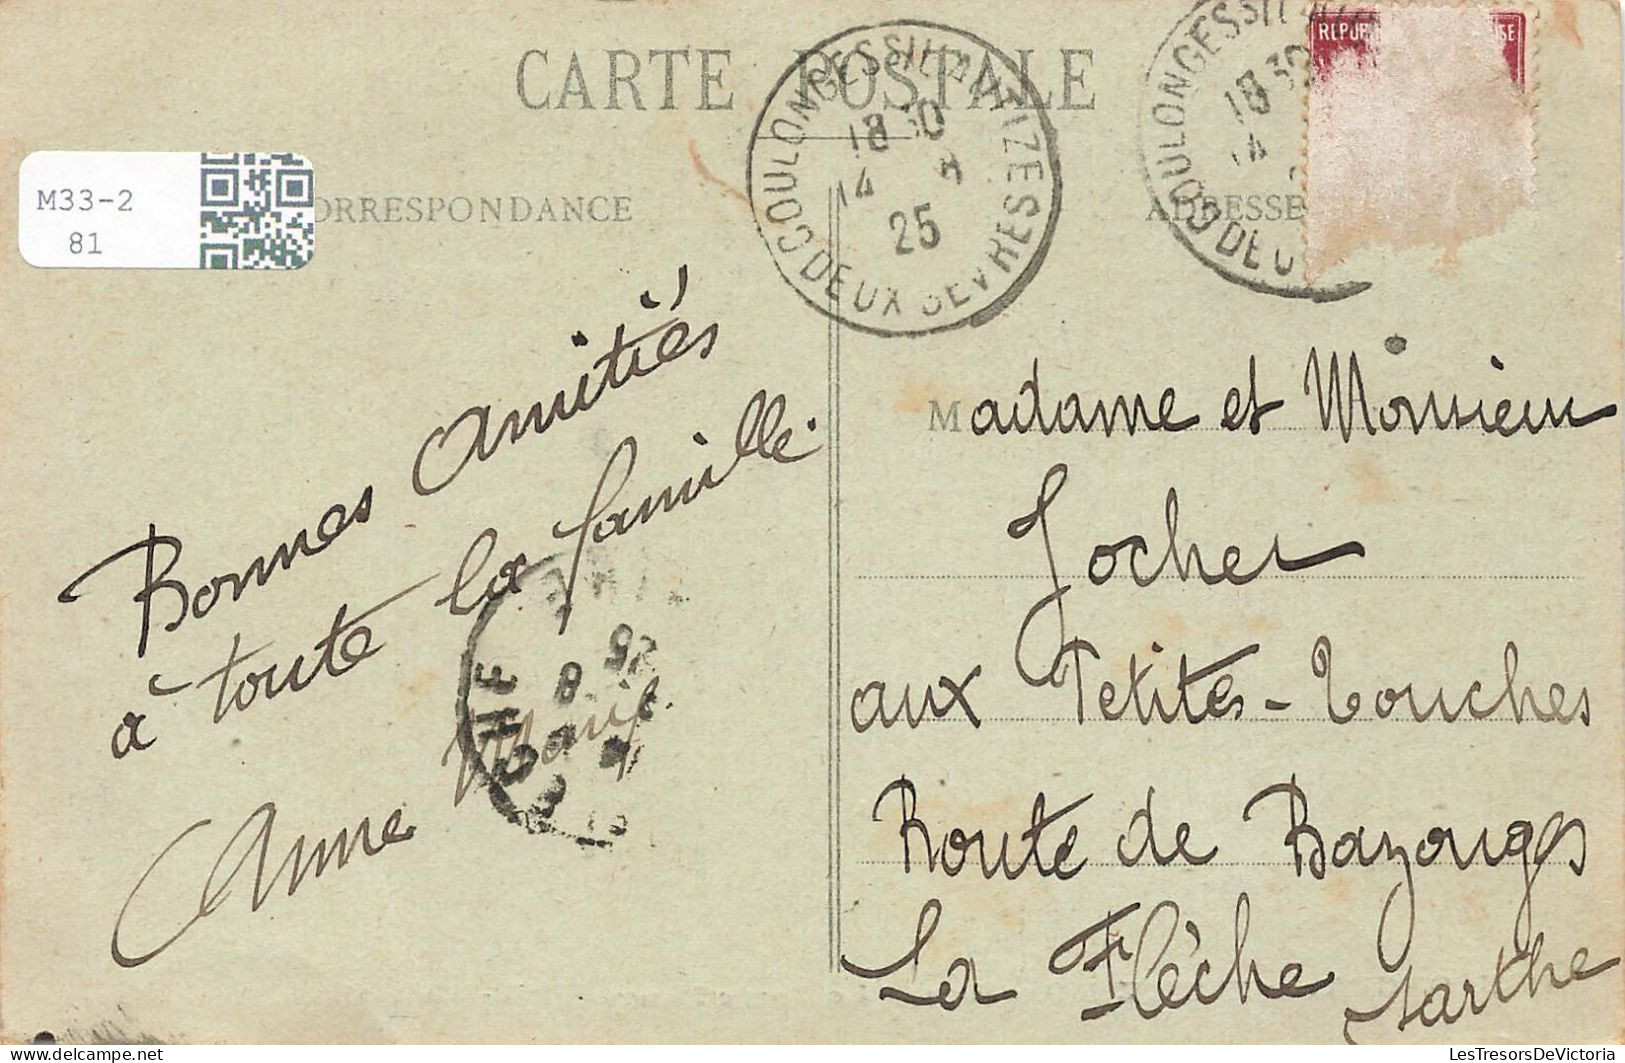 CARTE POSTALE
COULONGES S/L'AUTIZE
18 30
14 8
25
DEUX SEVRES
18 30
14
REPU
SE
M33-2
81
ORRESPONDANCE
ADRESSE
Bonnes amitiés
à toute la famille.
Anne Marie
Madame et Monsieur
Jocher
aux Petites-Touches
Route de Bazouges
La Flèche Sarthe
delcampe.net
LesTresorsDeVictoria